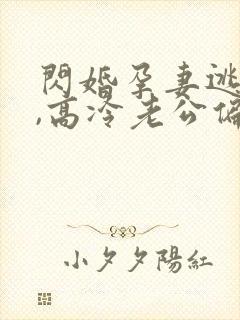 閃婚孕妻逃
,高冷老公偏
小夕夕陽紅